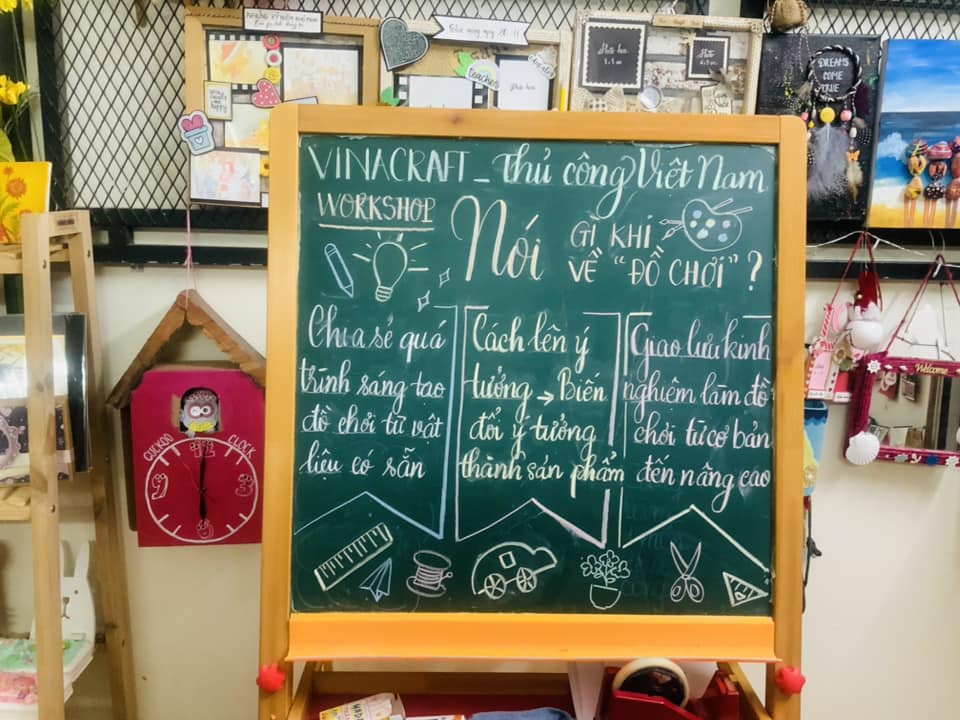 VINACRAFT - Thủ công Việt Nam
WORKSHOP
Nói
GÌ KHI
VỀ "ĐỒ CHƠI" ?
Chia sẻ quá
trình sáng tạo
đồ chơi từ vật
liệu có sẵn
Cách lên ý
tưởng → Biến
đổi ý tưởng
thành sản phẩm
Giao lưu kinh
nghiệm làm đồ
chơi từ cơ bản
đến nâng cao
DREAMS
COME
TRUE
teacher
Welcome
CUCKOO CLOCK
12
3
9